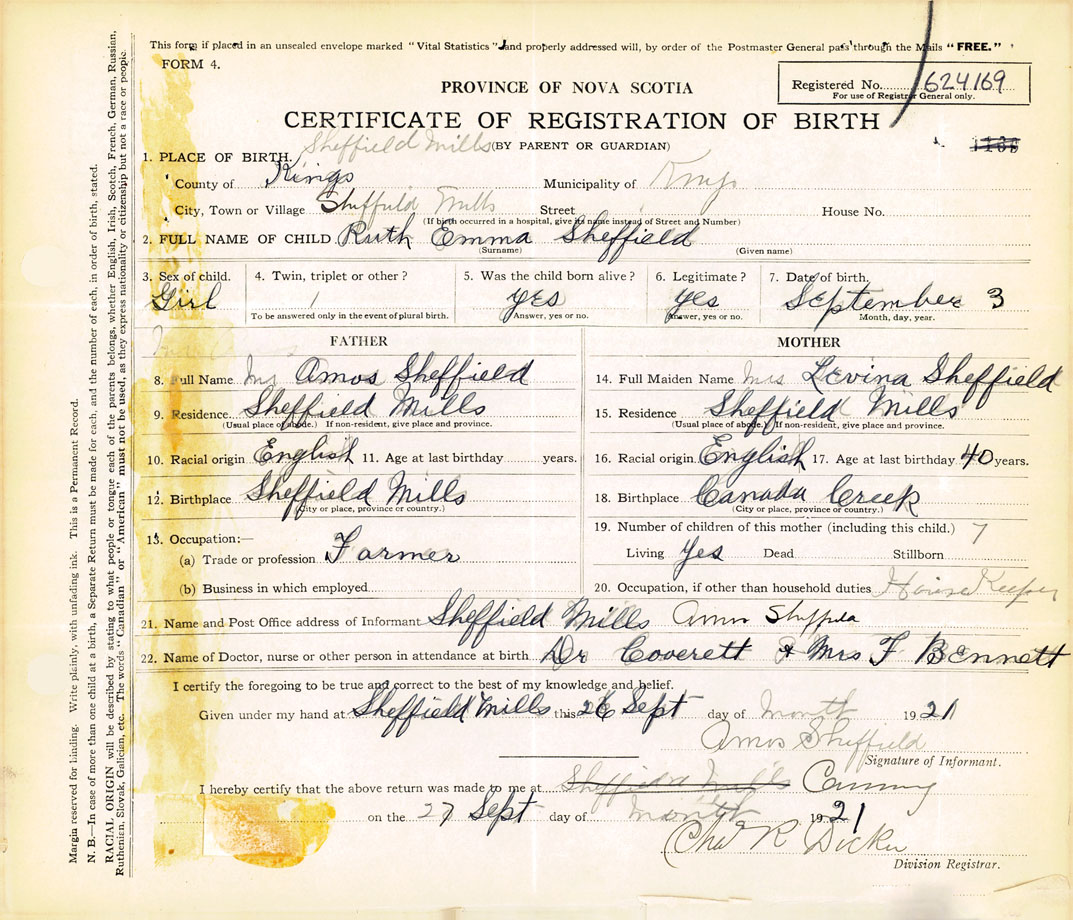 This form if placed in an unsealed envelope marked "Vital Statistics" and properly addressed will, by order of the Postmaster General pass through the Mails "FREE."
FORM 4.
Registered No. 624169
For use of Registrar General only.
PROVINCE OF NOVA SCOTIA
CERTIFICATE OF REGISTRATION OF BIRTH
(BY PARENT OR GUARDIAN)
1. PLACE OF BIRTH. Sheffield Mills
County of Kings Municipality of Kings
City, Town or Village Sheffield Mills Street House No.
(If birth occurred in a hospital, give its name instead of Street and Number)
2. FULL NAME OF CHILD Ruth Emma Sheffield
(Surname) (Given name)
3. Sex of child. 4. Twin, triplet or other? 5. Was the child born alive? 6. Legitimate? 7. Date of birth.
Girl 1 yes yes September 3
To be answered only in the event of plural birth. Answer, yes or no. Answer, yes or no. Month, day, year.
FATHER MOTHER
8. Full Name Mr Amos Sheffield
14. Full Maiden Name Mrs Levina Sheffield
9. Residence Sheffield Mills
15. Residence Sheffield Mills
(Usual place of abode.) If non-resident, give place and province.
(Usual place of abode.) If non-resident, give place and province.
10. Racial origin English 11. Age at last birthday years.
16. Racial origin English 17. Age at last birthday 40 years.
12. Birthplace Sheffield Mills
18. Birthplace Canada Creek
(City or place, province or country.)
(City or place, province or country.)
13. Occupation:—
19. Number of children of this mother (including this child.) 7
(a) Trade or profession Farmer
Living Yes Dead Stillborn
(b) Business in which employed
20. Occupation, if other than household duties House Keeper
21. Name and Post Office address of Informant Sheffield Mills Amos Sheffield
22. Name of Doctor, nurse or other person in attendance at birth Dr Coverett & Mrs F Bennett
I certify the foregoing to be true and correct to the best of my knowledge and belief.
Given under my hand at Sheffield Mills this 26 Sept day of month 1921
Amos Sheffield
Signature of Informant.
I hereby certify that the above return was made to me at Sheffield Mills Canning
on the 27 Sept day of month 1921
Chas R Dickie
Division Registrar.
Margin reserved for binding. Write plainly, with unfading ink. This is a Permanent Record.
N. B.—In case of more than one child at a birth, a Separate Return must be made for each, and the number of each, in order of birth, stated.
RACIAL ORIGIN will be described by stating to what people or tongue each of the parents belongs, whether English, Irish, Scotch, French, German, Russian,
Ruthenian, Slovak, Galician, etc. The words "Canadian" or "American" must not be used, as they express nationality or citizenship but not a race or people.